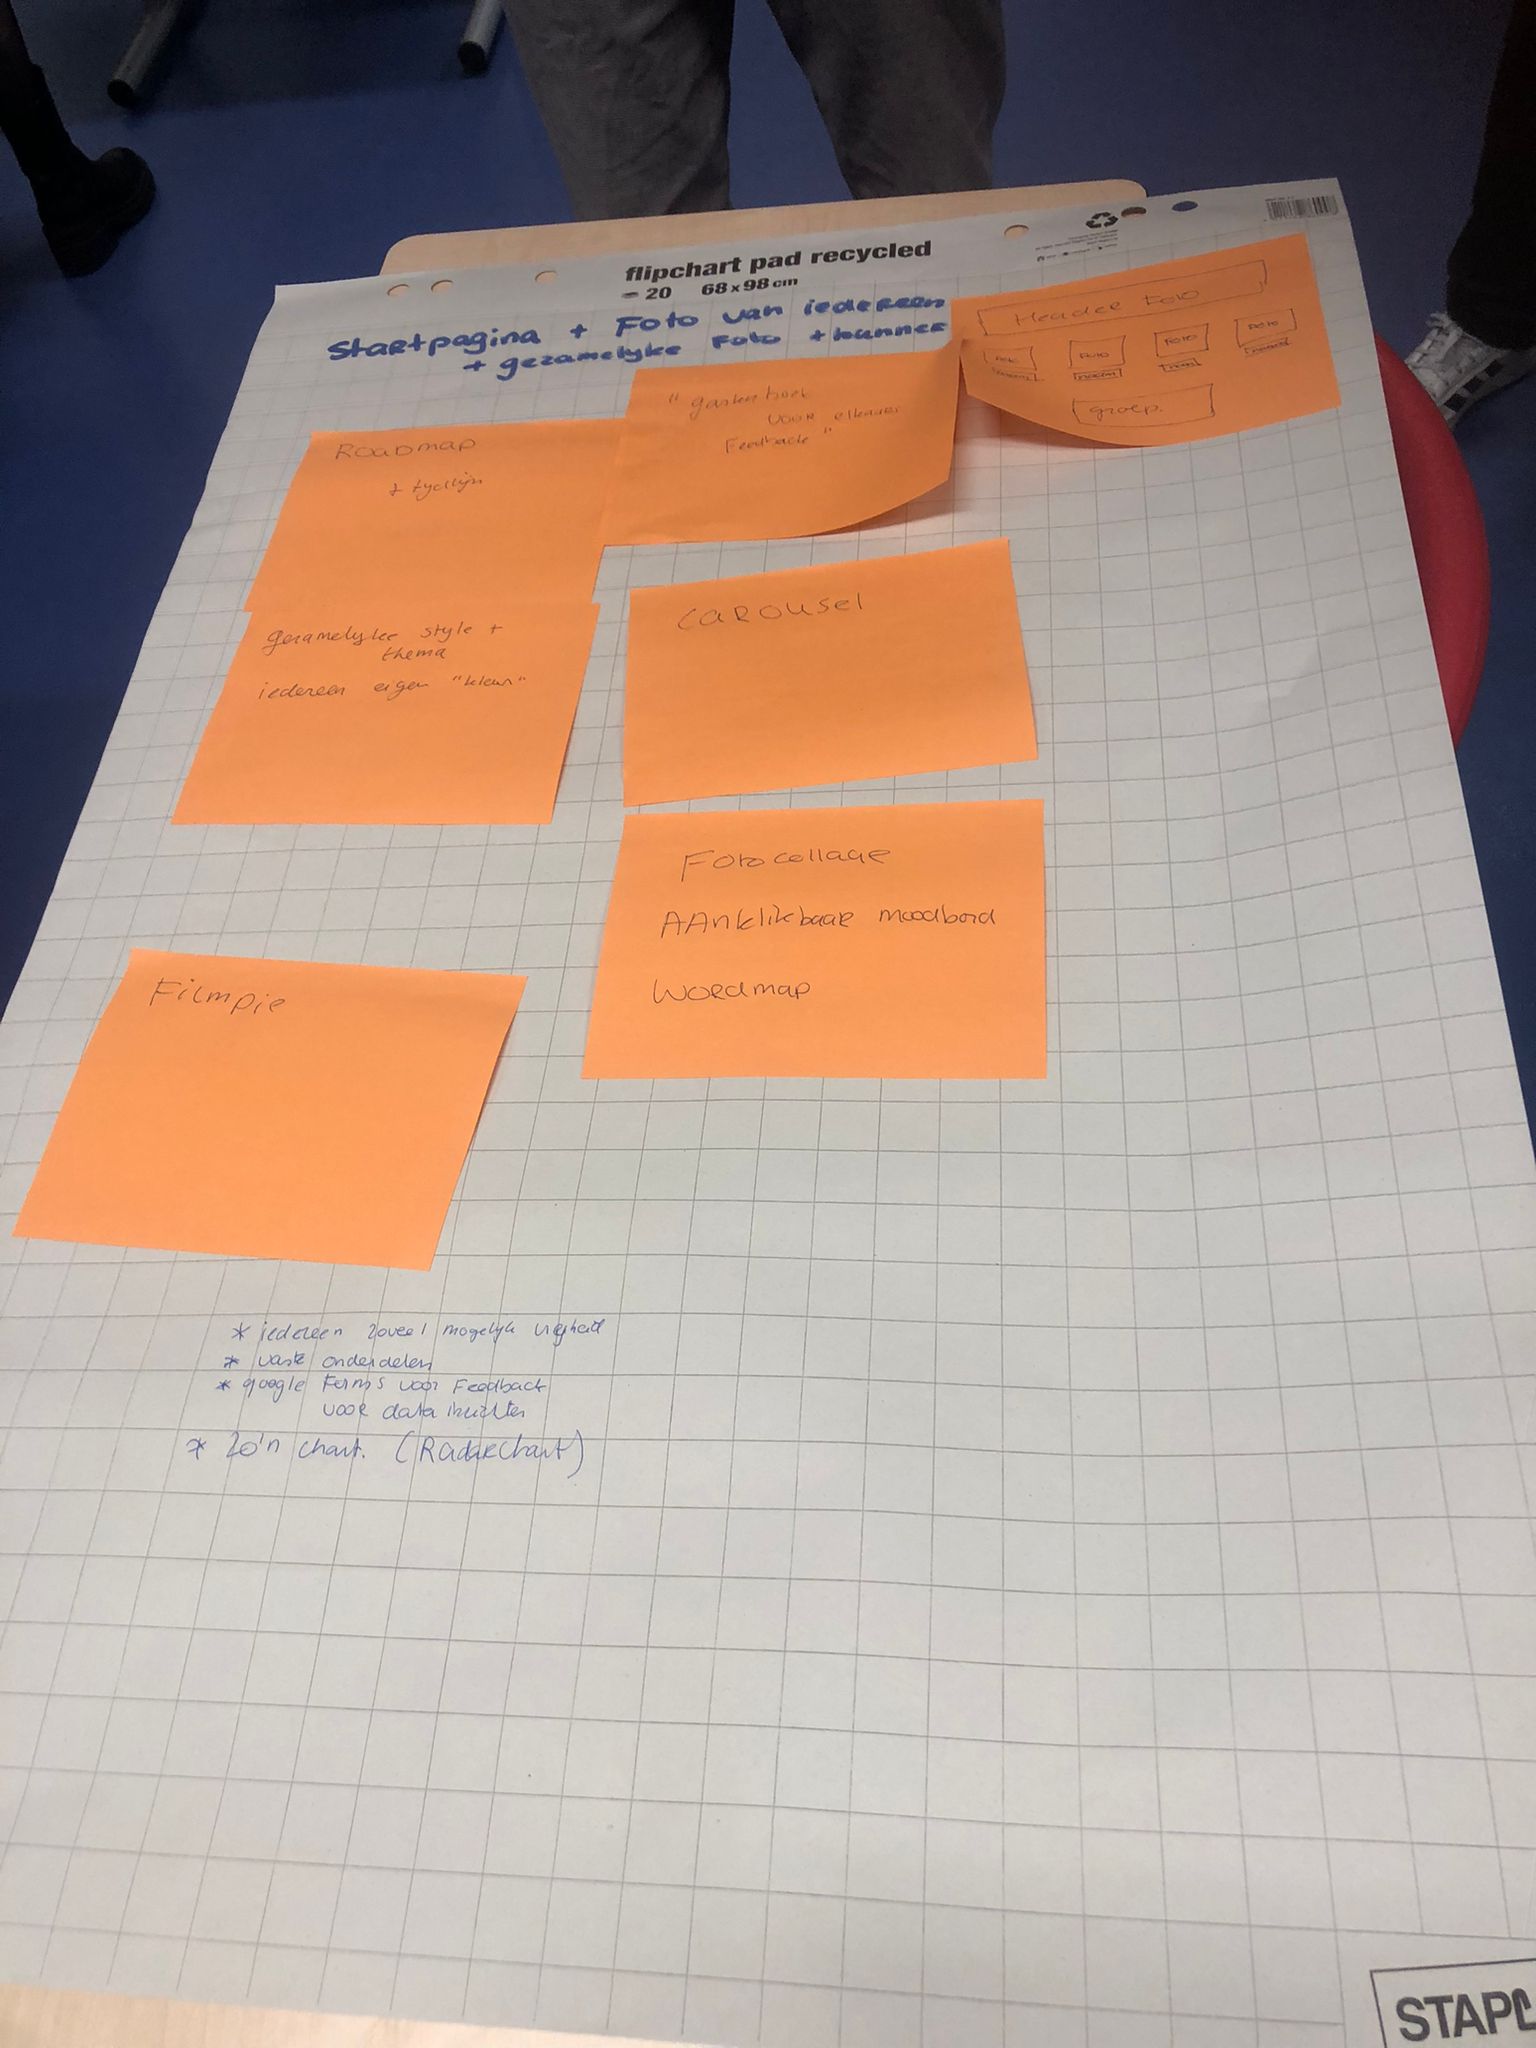 flipchart pad recycled
20 68 x 98 cm
Startpagina + Foto van iedereen
+ gezamelyke Foto + banner
Header Foto
Foto Foto Foto Foto
naam naam naam naam
groep
"gastenboek
voor elkaars
Feedback"
Roadmap
+ tydlijn
gezamelyke style +
thema
iedereen eigen "kleur"
Carousel
Fotocollage
AAnklikbaar moodbord
Wordmap
Filmpje
* iedereen zoveel mogelyk vryheid
* vaste onderdelen
* google Forms voor Feedback
voor data inzichten
* Zo'n chart. (Radarchart)
STAPL